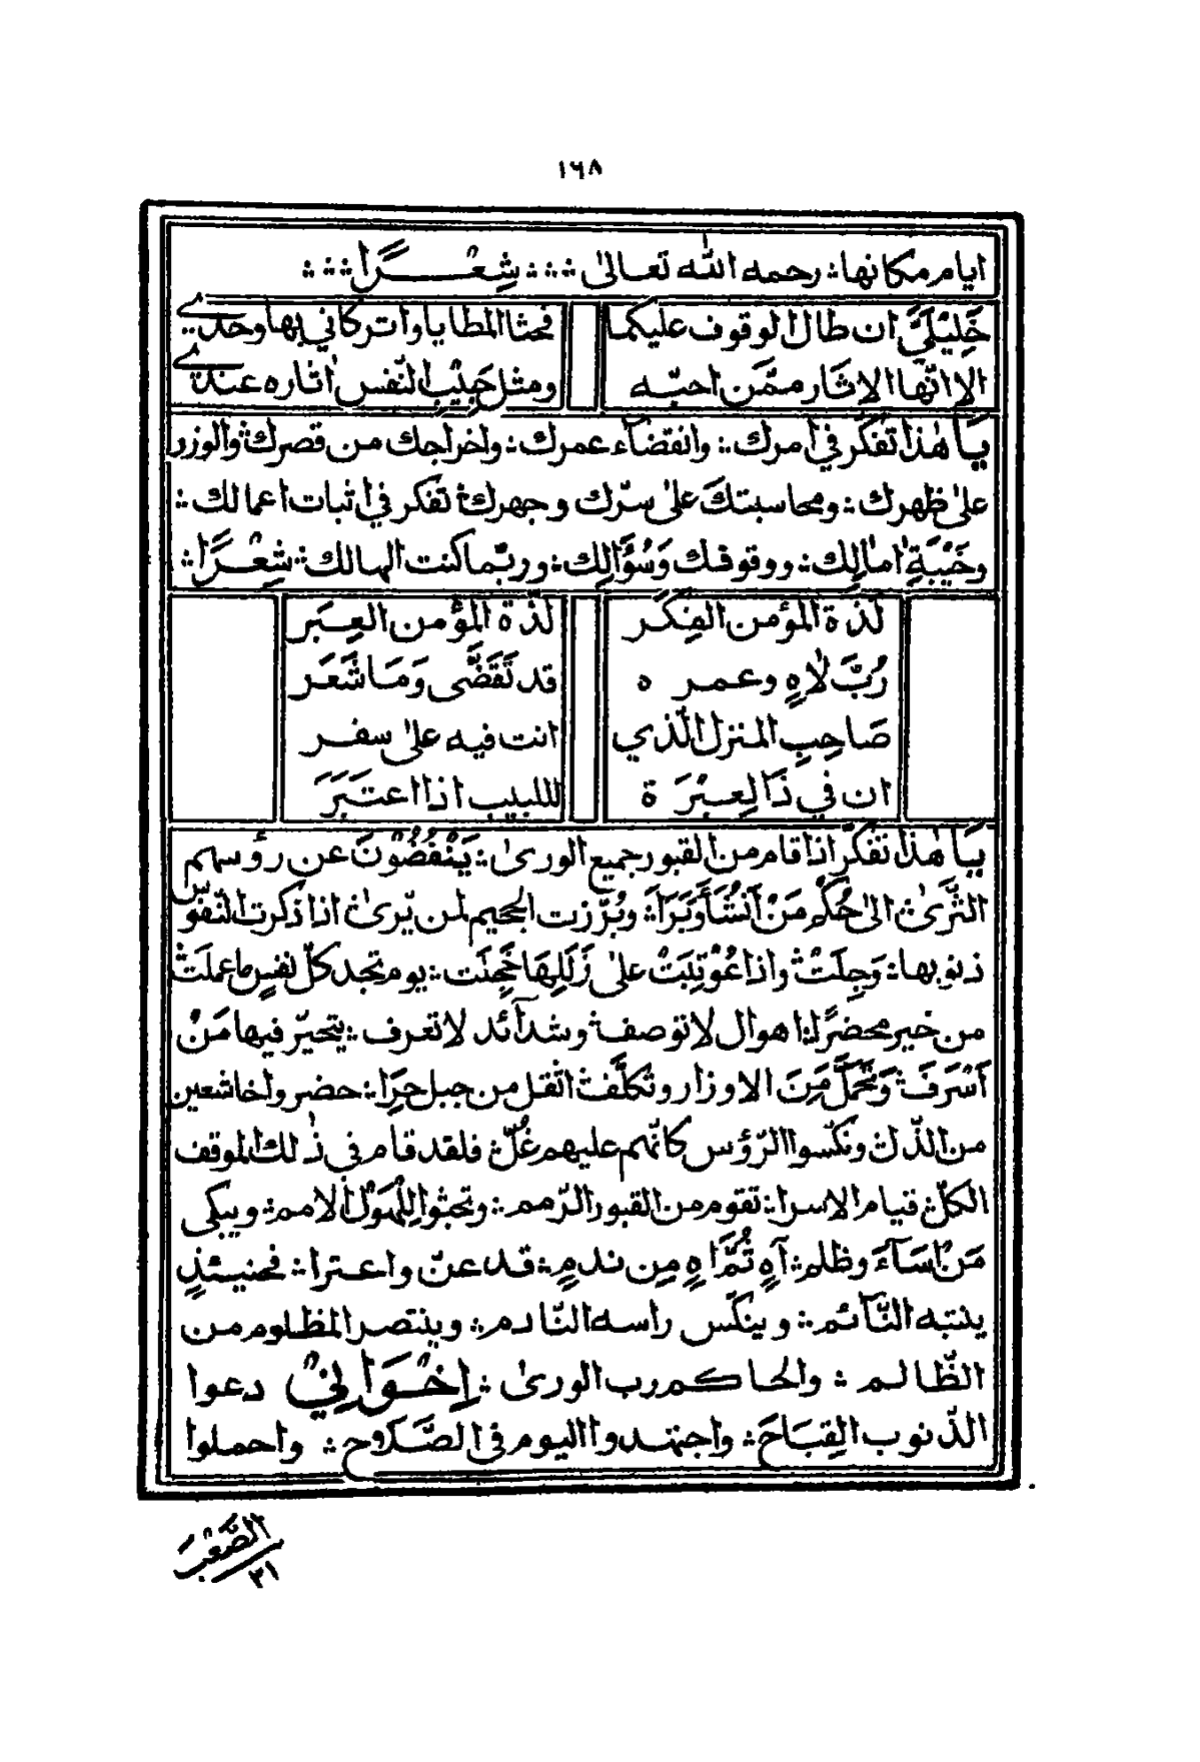 ١٦٨
ايام مكانها ؞ رحمه الله تعالىٰ ؞ ؞ ؞ شِعْـــرًا ؞ ؞ ؞
خَلِيْلَيَّ ان طال الوقوف عليكما فحثا المطايا واتركاني بها وحدي
الا انّها الاثار ممَّن احبّه ومثل حَبِيْب النّفس اٰثاره عندي
يَا هٰذا تفكّر في امرك ؞ وانقضآء عمرك ؞ واخراجك من قصرك ؞ والوزر
علىٰ ظهرك ؞ ومحاسبتكَ علىٰ سرّك وجهرك ؞ تفكر في اثبات اعمالك ؞
وخَيْبَةِ اٰمالِك ؞ ووقوفك وَسُؤَالِك ؞ وربّما كنت الهالك ؞ شِعْرًا ؞
لذّة المؤمن الفِكَر لذّة المؤمن العِبَر
رُبَّ لاٰهٍ وعمره قد تَقَضّٰى وَمَا شَعَر
صَاحِبِ المنزل الّذي انت فيه علىٰ سفر
ان في ذَا لَعِبْرَة للبيب اذا اعتَبَرَ
يَا هٰذا تفكّر اذا قام من القبور جميع الورىٰ ؞ يَنْفُضُوْنَ عن رؤسهم
الثَّرىٰ ؞ الىٰ حُكْمِ مَنْ اَنْشَأَ وَبَرَاَ ؞ وبُرّزت الجحيم لمن يّرىٰ ؞ اذا ذكرت النّفوس
ذنوبها ؞ وَجِلَتْ ؞ واذا عُوْتِبَتْ علىٰ زَلَلِهَا خَجِلَت ؞ يوم تجد كلّ نفسٍ ما عملَتْ
من خير محضرًا ؞ اهوال لا توصف ؞ وشدآئد لا تعرف ؞ يتحيّر فيها مَنْ
اَسْرَفَ ؞ وَتَحَمَّلَ مِنَ الاوزار وتكلَّف ؞ اثقل من جبل حِرَا ؞ حضروا خاشعين
من الذّل ؞ ونكّسوا الرّؤس كانّهم عليهم غُلّ ؞ فلقد قام في ذٰلك الموقف
الكلّ ؞ قيام الاسرا ؞ تقوم من القبور الرّمم ؞ وتجثوا لِلْهَوْلِ الامم ؞ ويبكى
مَنْ اَسَآءَ وظلم ؞ آهٍ ثُمَّ اٰهٍ مِن ندمٍ ؞ قد عنّ واعترا ؞ فحنيئذٍ
ينتبه النّآئم ؞ وينكّس راسه النّادم ؞ وينتصر المظلوم من
الظّالم ؞ والحاكم رب الورىٰ ؞ اِخْوَانِيْ دعوا
الذّنوب القِبَاحَ ؞ واجتهدوا اليوم في الصَّلاٰح ؞ واحملوا
الصَّعْبَ
٢١